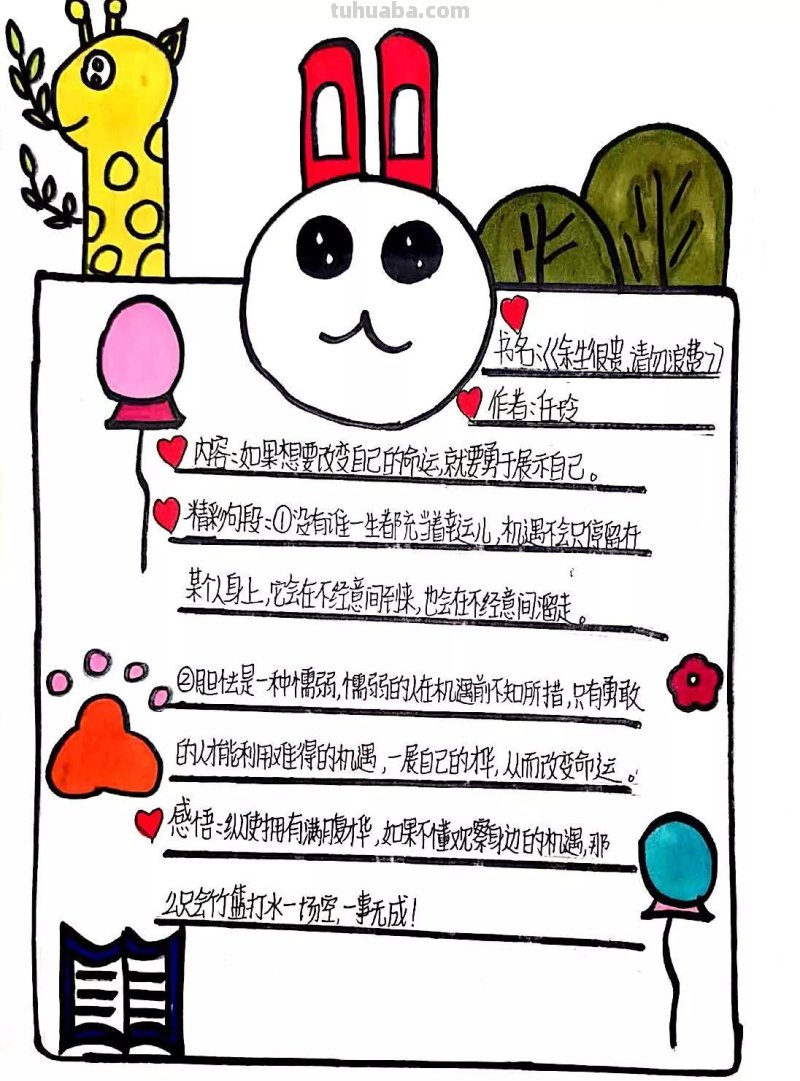 tuhuaba.com
书名:《余生很贵,请勿浪费》
作者:任玲
内容:如果想要改变自己的命运,就要勇于展示自己。
精彩句段:①没有谁一生都充当着幸运儿,机遇不会只停留在
某个人身上,它会在不经意间到来,也会在不经意间溜走。
②胆怯是一种懦弱,懦弱的人在机遇前不知所措,只有勇敢
的人才能利用难得的机遇,一展自己的才华,从而改变命运。
感悟:纵使拥有满腹才华,如果不懂观察身边的机遇,那
么只会竹篮打水一场空,一事无成!